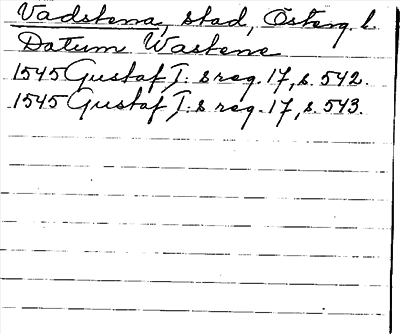 Vadstena, stad, Österg. l
Datum Wastene
1545 Gustaf I:s reg. 17, s. 542.
1545 Gustaf I:s reg. 17, s. 543.